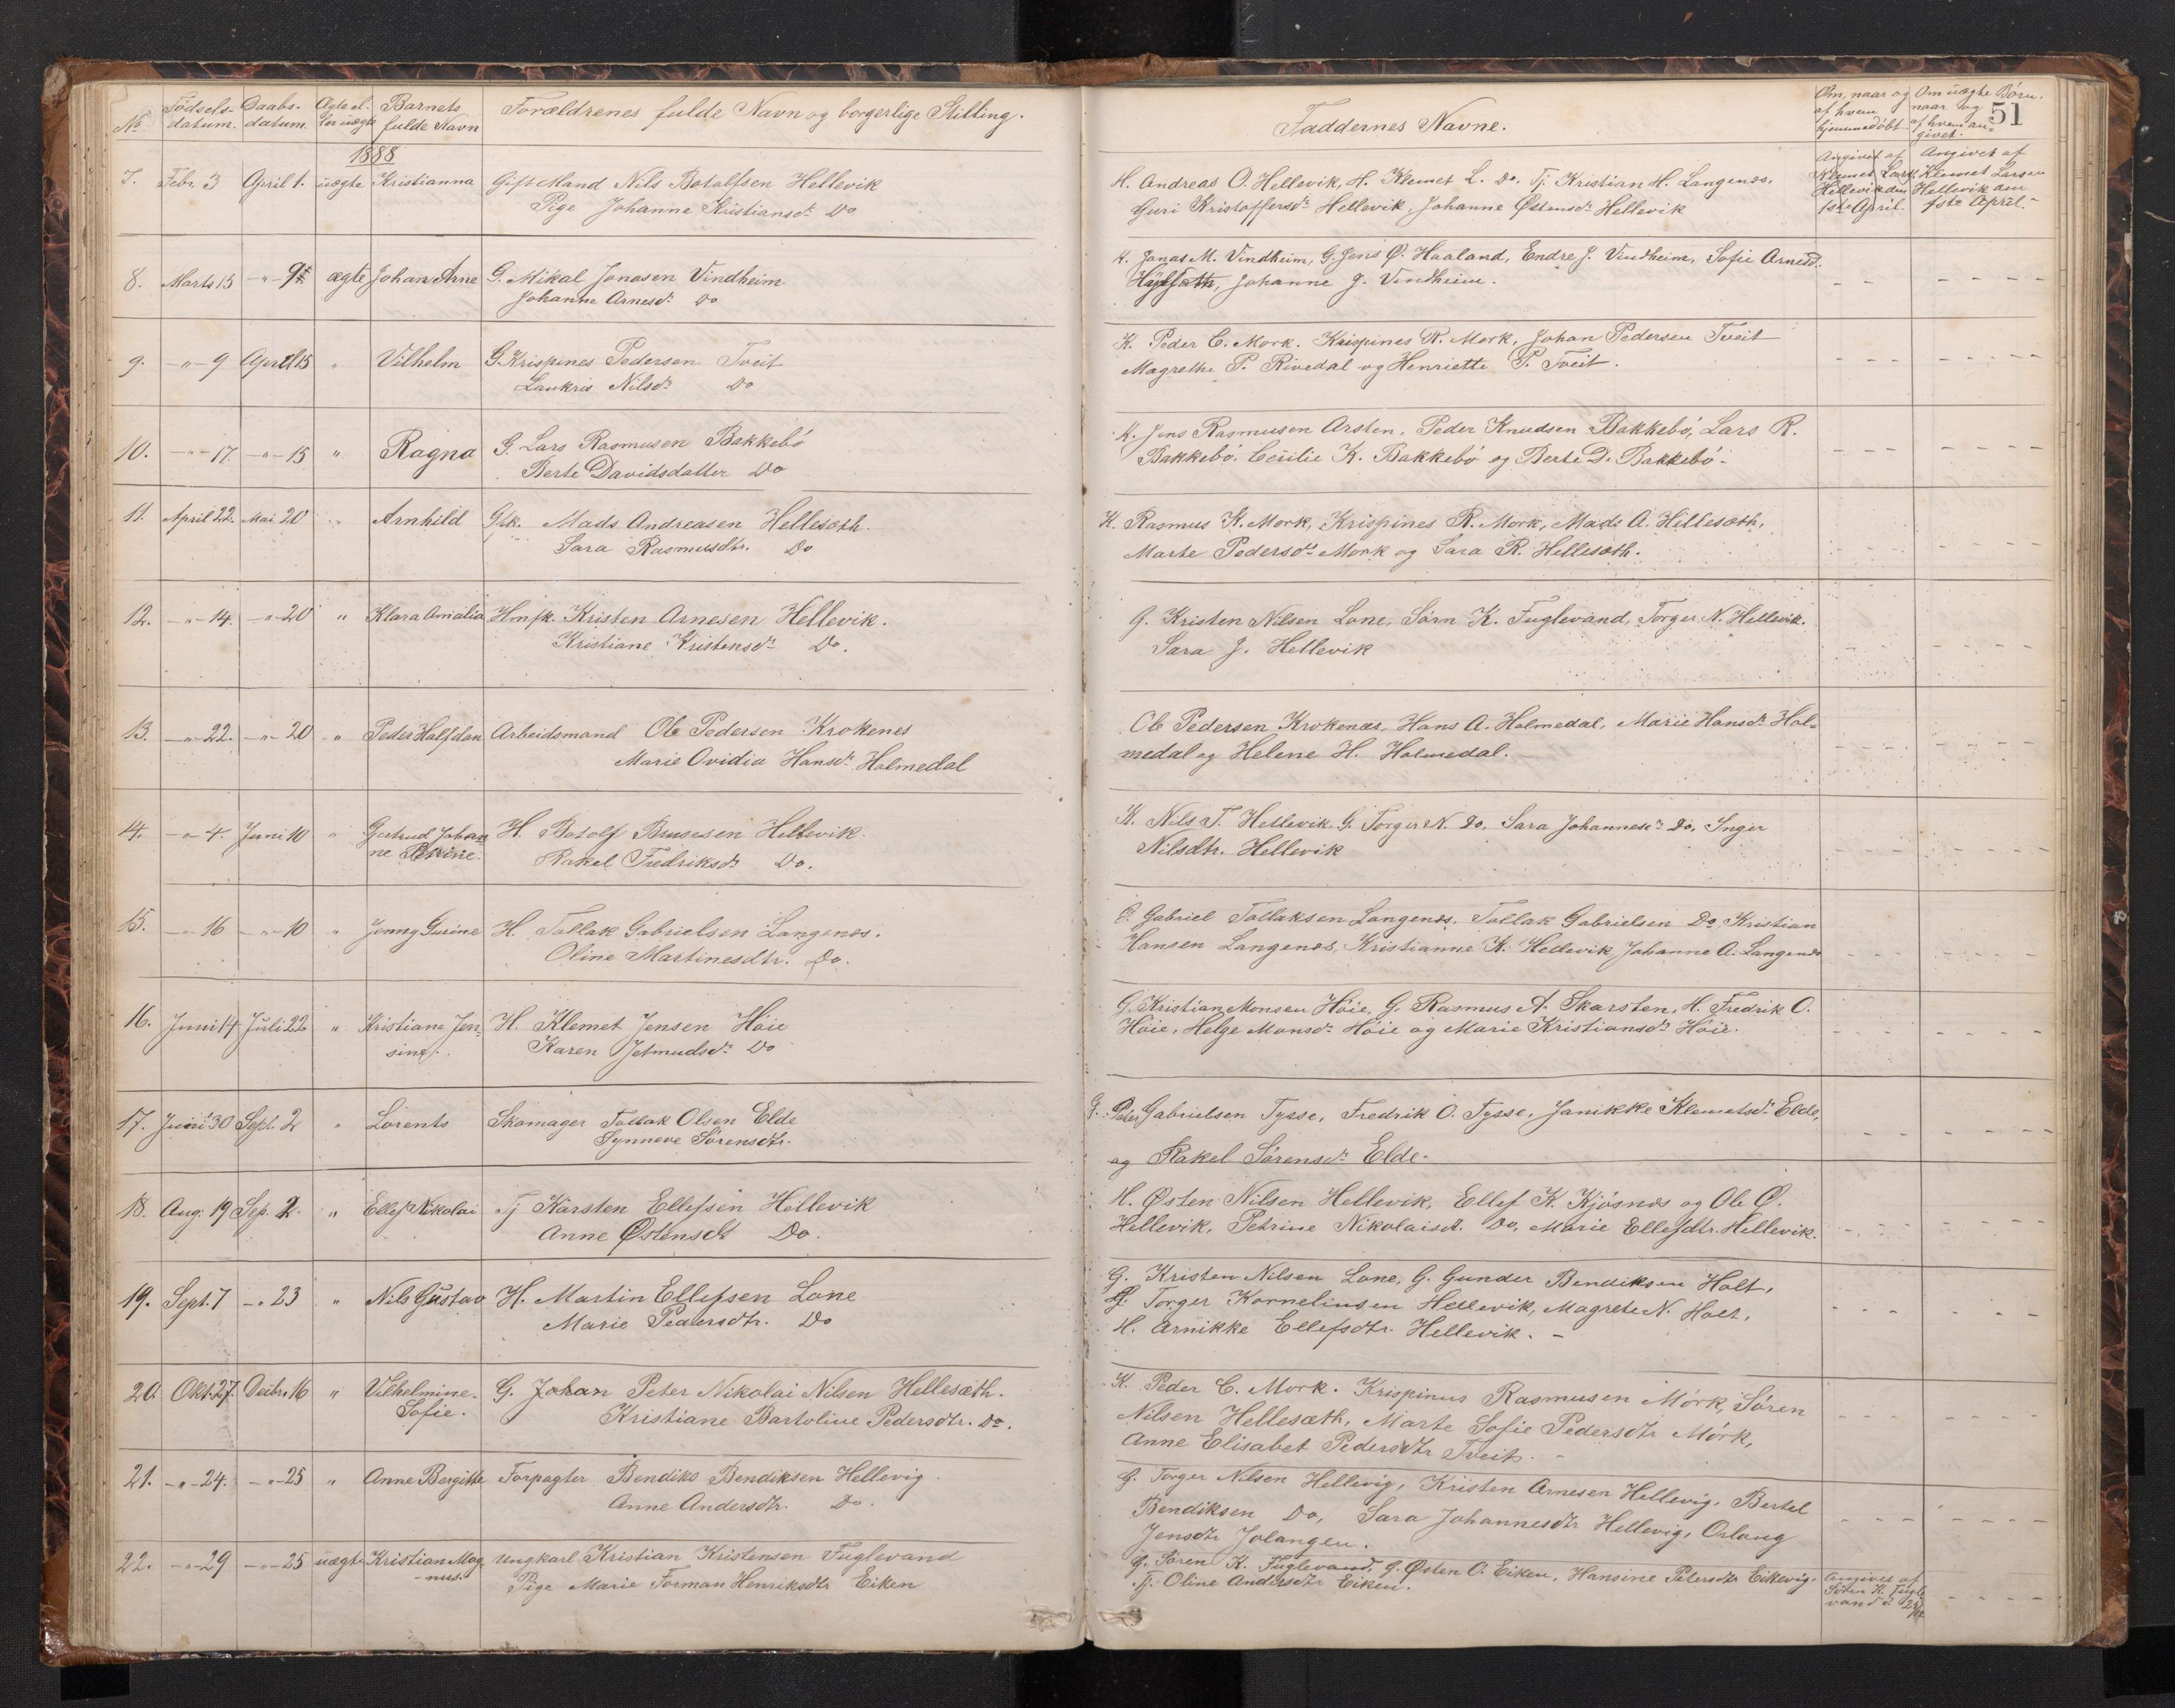 No Fødsels- datum. Daabs- datum. Ægte el- ler uægte Barnets fulde Navn Forældrenes fulde Navn og borgerlige Stilling. Faddernes Navne. Om, naar og af hvem hjemmedøbt Om uægte Børn, naar og af hvem an- givet. 51
1888
7. Febr. 3 April 1. uægte Kristianna Gift Mand Nils Botolfsen Hellevik
Pige Johanne Kristiansdr Do
H. Andreas O. Hellevik, H. Klemet L. Do, Tj. Kristian H. Langenæs,
Guri Kristoffersdr Hellevik, Johanne Østensdr Hellevik
Angivet af Klemet Lars. Hellevik den 1ste April.
Angivet af Klemet Larsen Hellevik den 1ste April.
8. Marts 15 -"- ægte Johan Arne G. Mikal Jonasen Vindheim
Johanne Arnesdr Do
K. Jonas M. Vindheim, G. Jens Ø. Haaland, Endre J. Vindheim, Sofie Arnesd.
Johanne J. Vindheim.
9. -"- 9 April 15 " Vilhelm G. Krispines Pedersen Tveit
Laukris Nilsdr Do
K. Peder C. Mork. Krispines R. Mork, Johan Pedersen Tveit
Magrethe P. Rivedal og Henriette P. Tveit.
10. -"- 17. -"- 15 " Ragna G. Lars Rasmusen Bakkebö
Berte Davidsdatter Do
K. Jens Rasmusen Arsten, Peder Knudsen Bakkebö, Lars R.
Bakkebö. Cecilie K. Bakkebö og Berte D. Bakkebö.
11. April 22. Mai 20 " Arnhild Gbk. Mads Andreasen Hellesæth.
Sara Rasmusdtr. Do
K. Rasmus K. Mork, Krispines R. Mork, Mads A. Hellesæth,
Marte Pedersdr Mork og Sara R. Hellesæth.
12. -"- 14. -"- 20 " Klara Amalia Hmsk. Kristen Arnesen Hellevik.
Kristiane Kristensdr Do.
G. Kristen Nilsen Lone, Sörn K. Fuglevand, Torger N. Hellevik.
Sara J. Hellevik
13. -"- 22. -"- 20 " Peder Halfdan Arbeidsmand Ole Pedersen Krokenes
Marie Ovidia Hansdr Holmedal
Ole Pedersen Krokenæs, Hans A. Holmedal, Marie Hansdr Hol-
medal og Helene H. Holmedal.
14. -"- 4. Juni 10 " Gertrud Johan- H. Botolf Brusesen Hellevik.
ne Petrine. Rakel Fredriksdr Do.
K. Nils T. Hellevik. G. Torger N. Do, Sara Johannesdr Do, Inger
Nilsdtr. Hellevik
15. -"- 16 -"- 10 " Jenny Gurine H. Tollak Gabrielsen Langenæs.
Oline Martinesdtr. Do.
G. Gabriel Tollaksen Langenæs. Tollak Gabrielsen Do Kristian
Hansen Langenæs, Kristianne K. Hellevik, Johanne A. Langenæs
16. Juni 14 Juli 22 " Kristiane Jen- H. Klemet Jensen Höie
sine. Karen Jetmudsdr Do
G. Kristian Monsen Höie, G. Rasmus A. Skarsten, H. Fredrik O.
Höie, Helge Monsdr Höie og Marie Kristiansdr Höie.
17. Juni 30 Sept. 2 " Lorents Skomager Tollak Olsen Elde
Synneve Sörensdtr.
G. Peder Gabrielsen Tysse, Fredrik O. Tysse, Janikke Klemetsdr Elde,
og Rakel Sörensdr Elde.
18. Aug. 19 Sep. 2. " Ellef Nikolai Tj Karsten Ellefsen Hellevik
Anne Østensdt Do.
H. Østen Nilsen Hellevik, Ellef K. Kjösnæs og Ole Ø.
Hellevik, Petrine Nikolaisd. Do, Marie Ellefsdtr. Hellevik.
19. Sept. 7 -"- 23 " Nils Gustav H. Martin Ellefsen Lone
Marie Pedersdtr. Do
G. Kristen Nilsen Lone, G. Gunder Bendiksen Holt,
G. Torger Korneliusen Hellevik, Magrete N. Holt,
H. Arnikke Ellefsdtr. Hellevik. -
20. Okt. 27. Decbr. 16 " Vilhelmine G. Johan Peter Nikolai Nilsen Hellesæth.
Sofie. Kristiane Bartoline Pedersdtr. Do.
K. Peder C. Mork. Krispinus Rasmusen Mörk, Sören
Nilsen Hellesæth, Marte Sofie Pedersdtr Mörk,
Anne Elisabet Pedersdtr Tveit. -
21. -"- 24. -"- 25 " Anne Bergitte Forpagter Bendiks Bendiksen Hellevig.
Anne Andersdtr. Do.
G. Torger Nilsen Hellevig, Kristen Arnesen Hellevig, Bertel
Bendiksen Do, Sara Johannesdtr Hellevig, Orlaug
Jensdtr Jolangen.
22. -"- 29 -"- 25 uægte Kristian Mag- Ungkarl Kristian Kristensen Fuglevand
nus. Pige Marie Forman Henriksdtr Eiken
G. Sören K. Fuglevand, G. Østen O. Eiken, Hansine Petersdtr Eikevig,
Tj. Oline Andersdtr Eiken.
Angivet af Sören K. Fugle- vand d. 25/12